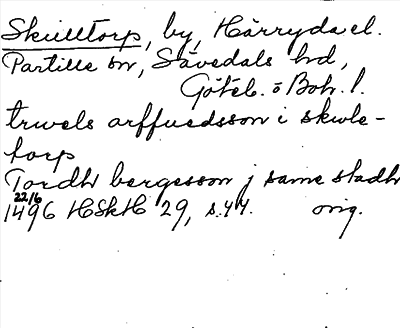 Skulltorp, by, Härryda el.
Partille sn, Sävedals hd,
Göteb. o Boh. l.
truels arffuedsson i skwle-
torp
Tordh bergesson j same stadh
22/6
1496 HSkH 29, s. 44. orig.